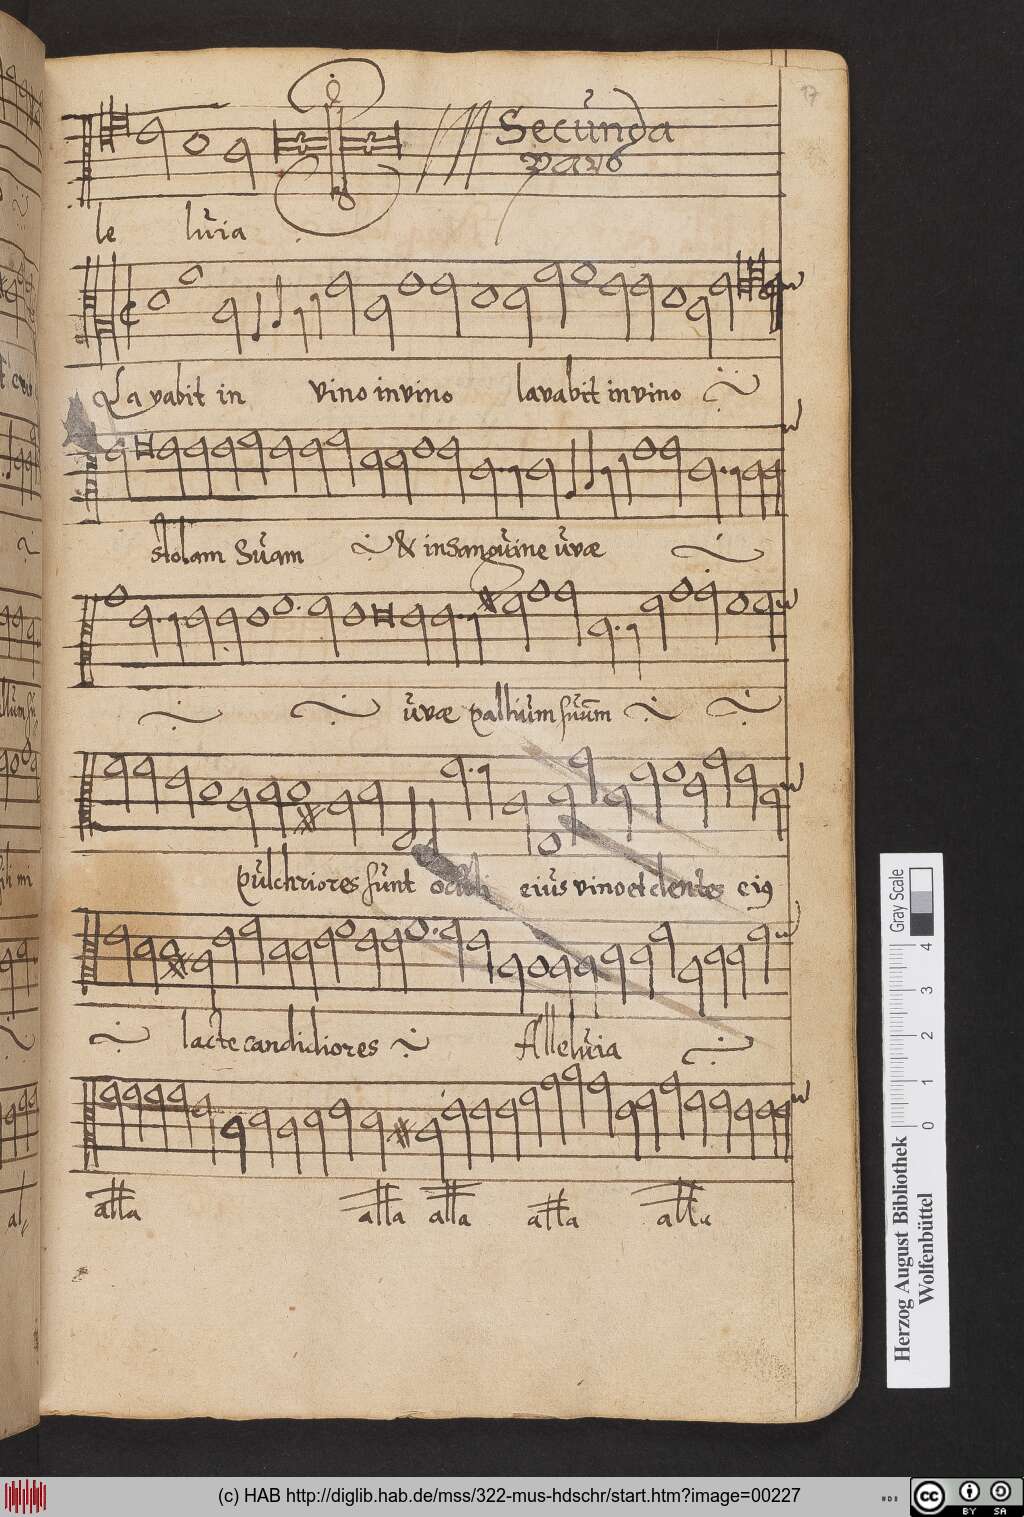 17
Secunda
pars
le luia
Lavabit in vino in vino lavabit in vino
stolam Suam & in Sanguine uvæ
uvæ pallium suum
pulchriores sunt oculi eius vino et dentes ei9
lacte candidiores Alleluia
alla alla alla alla alla
Gray Scale
4
3
2
1
0
Herzog August Bibliothek
Wolfenbüttel
(c) HAB http://diglib.hab.de/mss/322-mus-hdschr/start.htm?image=00227
cc
BY SA